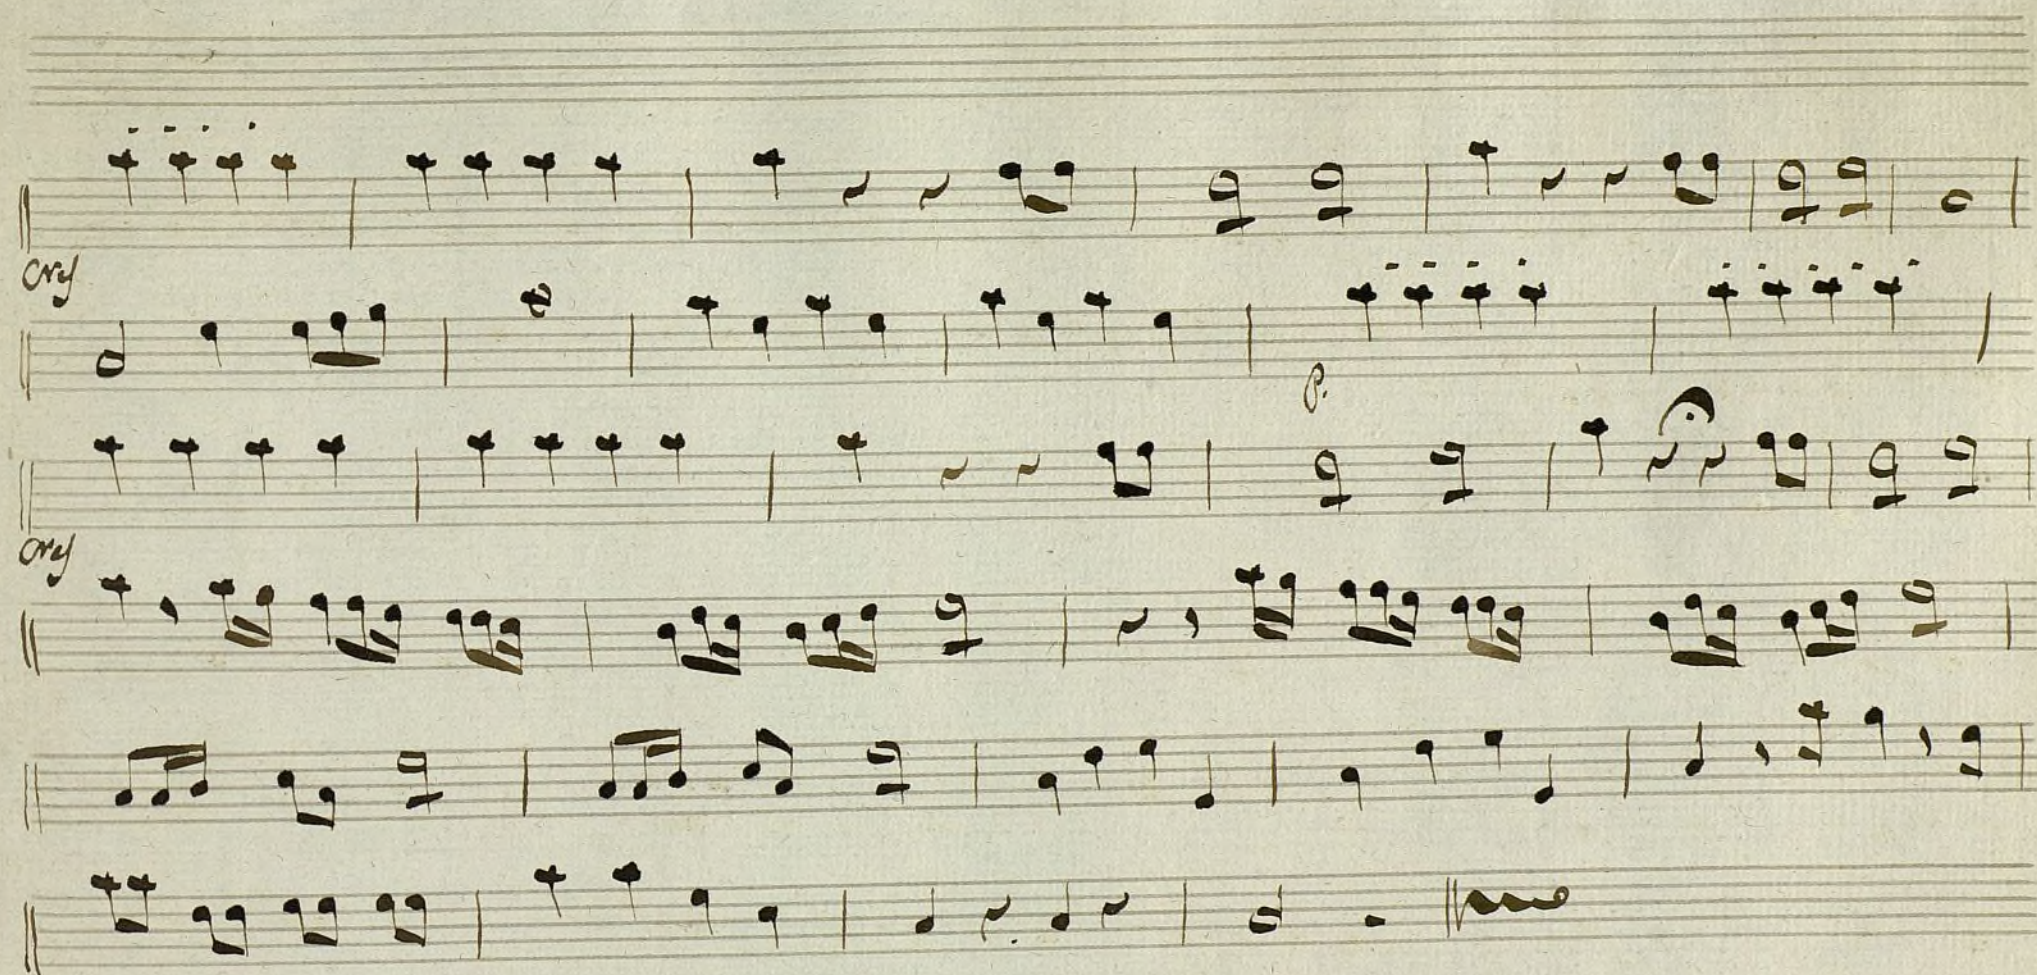 Cresc
P.
Cresc